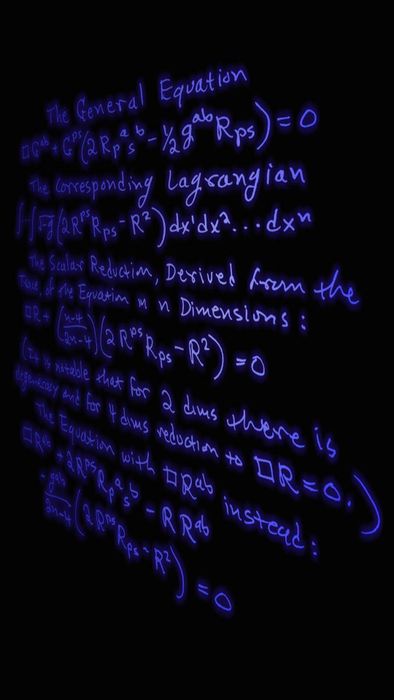 The General Equation
□Gᵃᵇ + Gᵖˢ(2Rₚᵃₛᵇ - ½gᵃᵇRps) = 0
The Corresponding Lagrangian
∫--∫√-g(2RᵖˢRps - R²)dx¹dx²...dxⁿ
The Scalar Reduction, Derived from the
Trace, of the Equation in n Dimensions:
□R + (n-4/2n-4)(2RᵖˢRps - R²) = 0
(It is notable that for 2 dims there is
degeneracy and for 4 dims reduction to □R=0.)
The Equation with □Rᵃᵇ instead:
□Rᵃᵇ + 2RᵖˢRₚᵃₛᵇ - RRᵃᵇ
- gᵃᵇ/2n-4 (2RᵖˢRps - R²) = 0